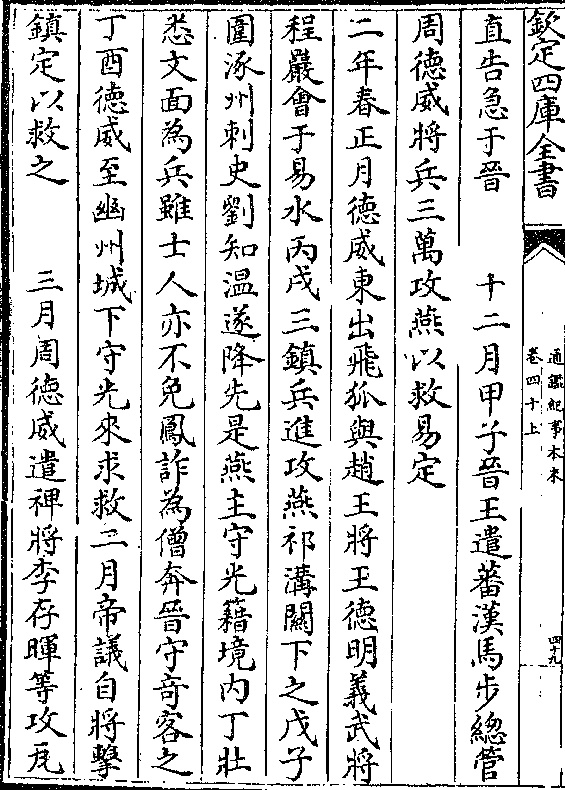 欽定四庫全書
通鑑紀事本末
卷四十上
四十九
直告急于晉　十二月甲子晉王遣蕃漢馬步總管
周德威將兵三萬攻燕以救易定
二年春正月德威東出飛狐與趙王將王德明義武將
程巖會于易水丙戌三鎮兵進攻燕祁溝關下之戊子
圍涿州刺史劉知溫遂降先是燕主守光籍境内丁壯
悉文面為兵雖士人亦不免鳳詐為僧奔晉守竒客之
丁酉德威至幽州城下守光來求救二月帝議自將擊
鎮定以救之　三月周德威遣裨將李存暉等攻瓦